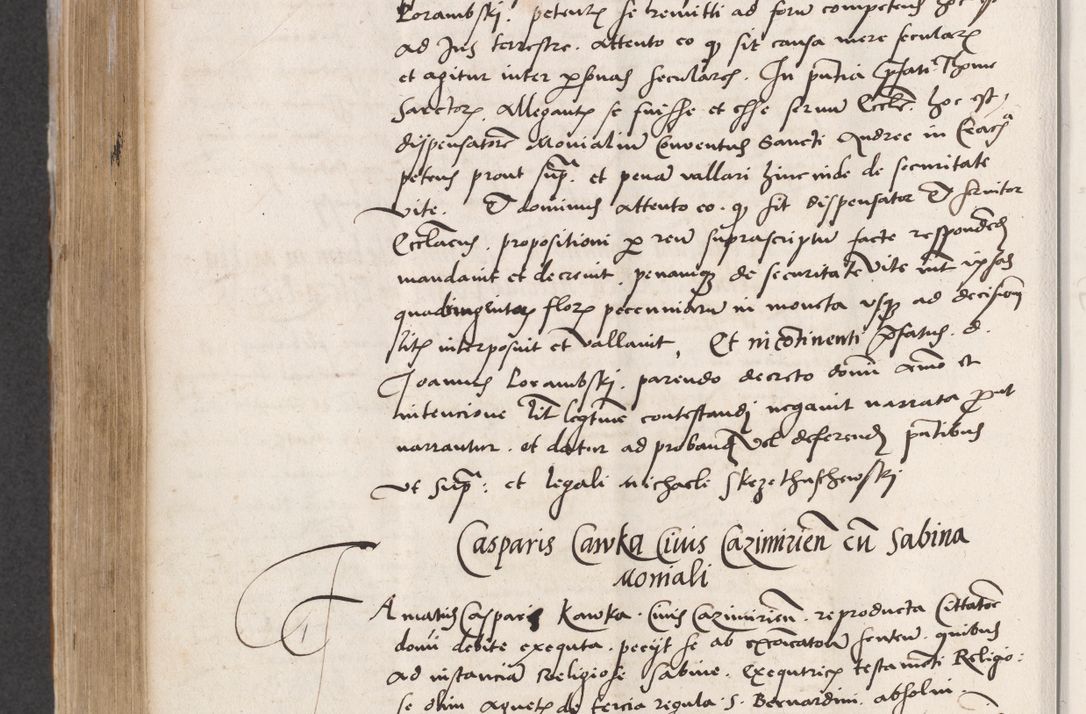 Lorambski. petentis se remitti ad foru competens hoc est
ad Jus terrestre. attento eo q sit causa mere secularis
et agitur inter psonas seculares. In pntia pfati Thome
allegantis se fuisse et esse servu Eccle. hoc est
dispensatore Monialiu Conventus Sancti Andree in
petens prout supra. et pena vallari hincinde de securitate
vite. D dominus attento eo. q sit dispensator et servitor
propositioni p reu suprascriptu facte respondend
mandavit et decrevit. penamq de securitate vite int ipsos
quadringentor flor pecuniaru in moneta usq ad decisione
litis interposuit et vallavit, Et incontinenti pfatus. d.
Joannes Lorambskj. parendo decreto domi animo et
intencione lit legtime contestandj negavit narrata prout
narrantur. et datur ad proband vel deferend pntibus
ut supra: et legali Michaeli
Casparis Cawka Civis Cazimirien cu Sabina
Moniali
Amatus Casparis Kawka. Civis Cazimirien. reproducta
domi debite exequta. peeyt se ab excoicatoria sententia. quibus
ad instancia Religiose Sabine. Exequtricis testamenti Religio:
se olim Agnetis de tercia regula. S. Bernardini. absolvi.